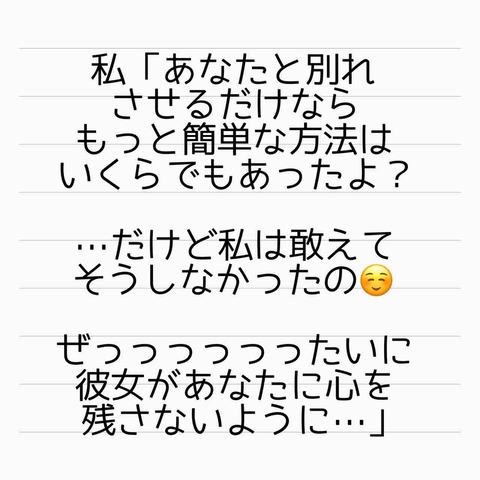 私「あなたと別れ
させるだけなら
もっと簡単な方法は
いくらでもあったよ？
…だけど私は敢えて
そうしなかったの☺️
ぜっっっっっったいに
彼女があなたに心を
残さないように…」